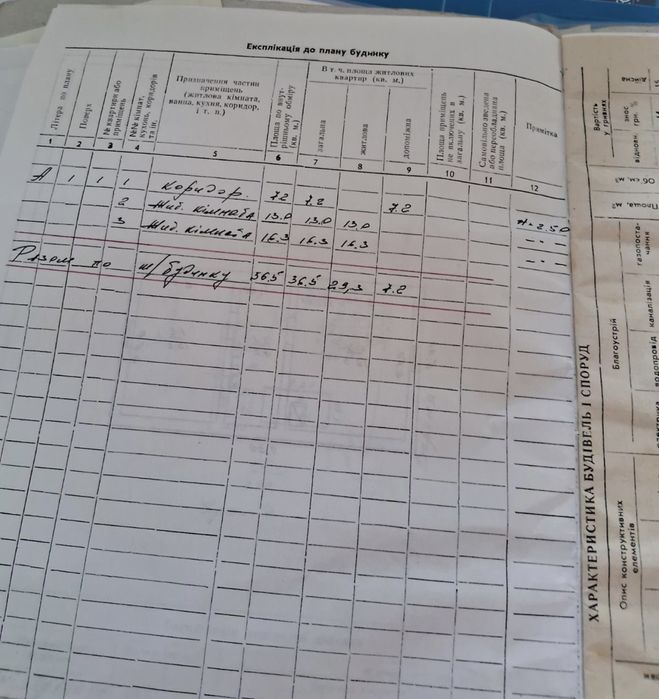 Експлікація до плану будинку
Літера по плану
Поверх
№ квартири або приміщень
№№ кімнат, кухонь, коридорів та ін.
Призначення частин приміщень (житлова кімната, ванна, кухня, коридор, і т. п.)
Площа по внутрішньому обміру (кв. м.)
В т. ч. площа житлових квартир (кв. м.)
загальна
житлова
допоміжна
Площа приміщень не включених в загальну (кв. м)
Самовільно зведена або переобладнана площа (кв. м)
Примітка
1 2 3 4 5 6 7 8 9 10 11 12
А 1 1 1 коридор. 7.2 7.2 7.2
2 жит. кімната 13.0 13.0 13.0 H-2.50
3 жит. кімната 16.3 16.3 16.3 -"-
-"-
Разом по ж/будинку 36.5 36.5 29,3 7.2
ХАРАКТЕРИСТИКА БУДІВЕЛЬ І СПОРУД
Опис конструктивних елементів
Благоустрій
водопровід
каналізація
газопостачання
Площа, м²
Об'єм, м³
Вартість у гривнях
відновн.
знос грн. %
дійсна